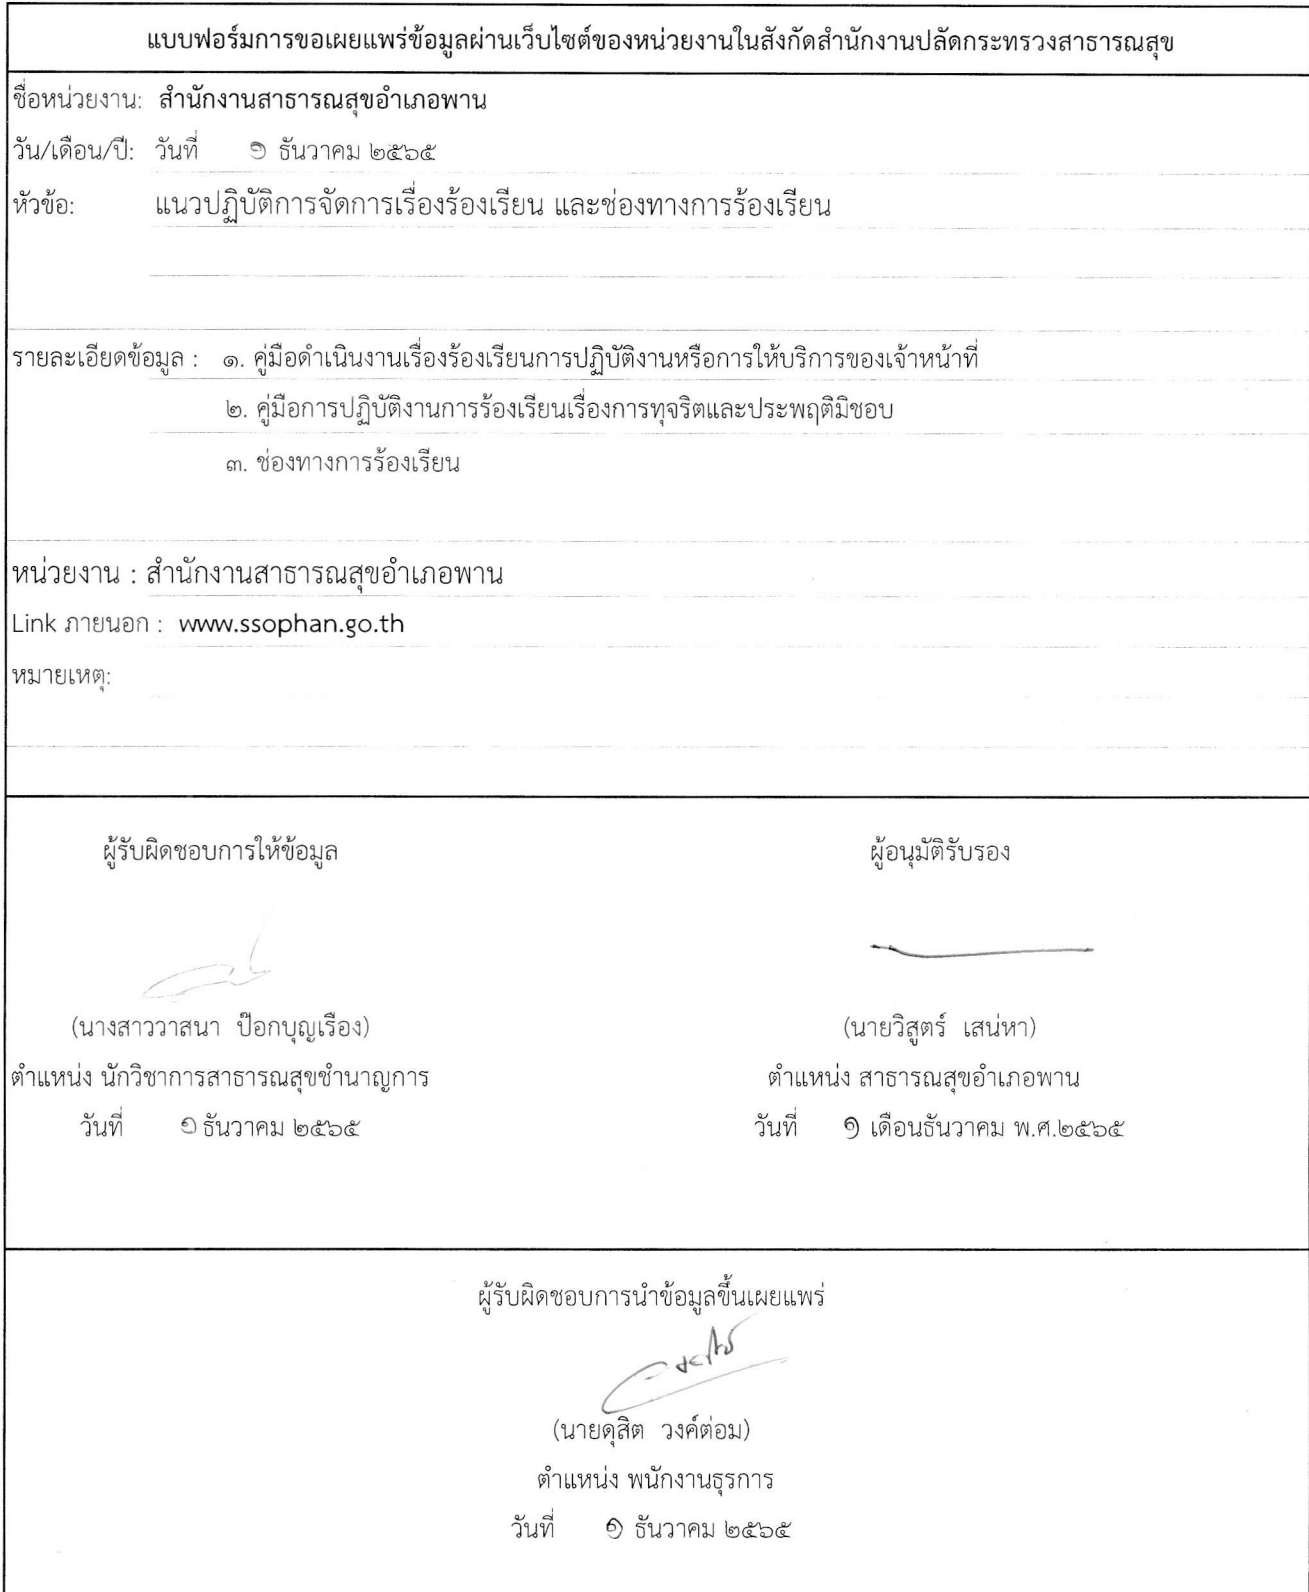 แบบฟอร์มการขอเผยแพร่ข้อมูลผ่านเว็บไซต์ของหน่วยงานในสังกัดสำนักงานปลัดกระทรวงสาธารณสุข
ชื่อหน่วยงาน: สำนักงานสาธารณสุขอำเภอพาน
วัน/เดือน/ปี: วันที่ ๑ ธันวาคม ๒๕๖๕
หัวข้อ: แนวปฏิบัติการจัดการเรื่องร้องเรียน และช่องทางการร้องเรียน
รายละเอียดข้อมูล : ๑. คู่มือดำเนินงานเรื่องร้องเรียนการปฏิบัติงานหรือการให้บริการของเจ้าหน้าที่
๒. คู่มือการปฏิบัติงานการร้องเรียนเรื่องการทุจริตและประพฤติมิชอบ
๓. ช่องทางการร้องเรียน
หน่วยงาน : สำนักงานสาธารณสุขอำเภอพาน
Link ภายนอก : www.ssophan.go.th
หมายเหตุ:
ผู้รับผิดชอบการให้ข้อมูล ผู้อนุมัติรับรอง
(นางสาววาสนา ป๊อกบุญเรือง) (นายวิสูตร์ เสน่หา)
ตำแหน่ง นักวิชาการสาธารณสุขชำนาญการ ตำแหน่ง สาธารณสุขอำเภอพาน
วันที่ ๑ ธันวาคม ๒๕๖๕ วันที่ ๑ เดือนธันวาคม พ.ศ.๒๕๖๕
ผู้รับผิดชอบการนำข้อมูลขึ้นเผยแพร่
(นายดุสิต วงค์ต่อม)
ตำแหน่ง พนักงานธุรการ
วันที่ ๑ ธันวาคม ๒๕๖๕